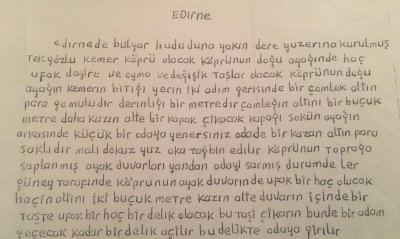 EDirne
edirnede bulgar hududuna yakın dere yuzerina kurulmuş
Tek gözlü kemer köprü olacak köprünun doğu ayağinde haç
ufak dayire ve oyma ve değişik Taşlar olacak köprünun doğu
ayağin kemerin bitiği yerin iki adım gerisinde bir çömlek altin
para gomuludir derinlığı bir metredir çomleğin altıni bir buçuk
metre daha kazın alte bir kapak çikacak kapaği sokün ayağin
arkasinde küçük bir odaya yenersiniz odade bir kazan altin para
saklıdır mali dokuz yuz oka tağbin edilır köprünun toprağa
saplanmış ayak duvarları yandan odayi sarmış durumde Ler
güney tarafınde köprunun ayak duvarinde ufak bir haç olacak
haçin altini iki buçuk metre kazın alte duvarin içinde bir
Taşte ufak bir haç bir delik olacak bu taşi çikarın burde bir adam
geçecek kadar bir delik açılır bu delikte odaya girilır